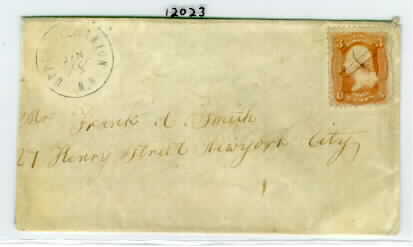 12023
UNION
JAN
Mr Frank A. Smith
27 Henry Street New york City